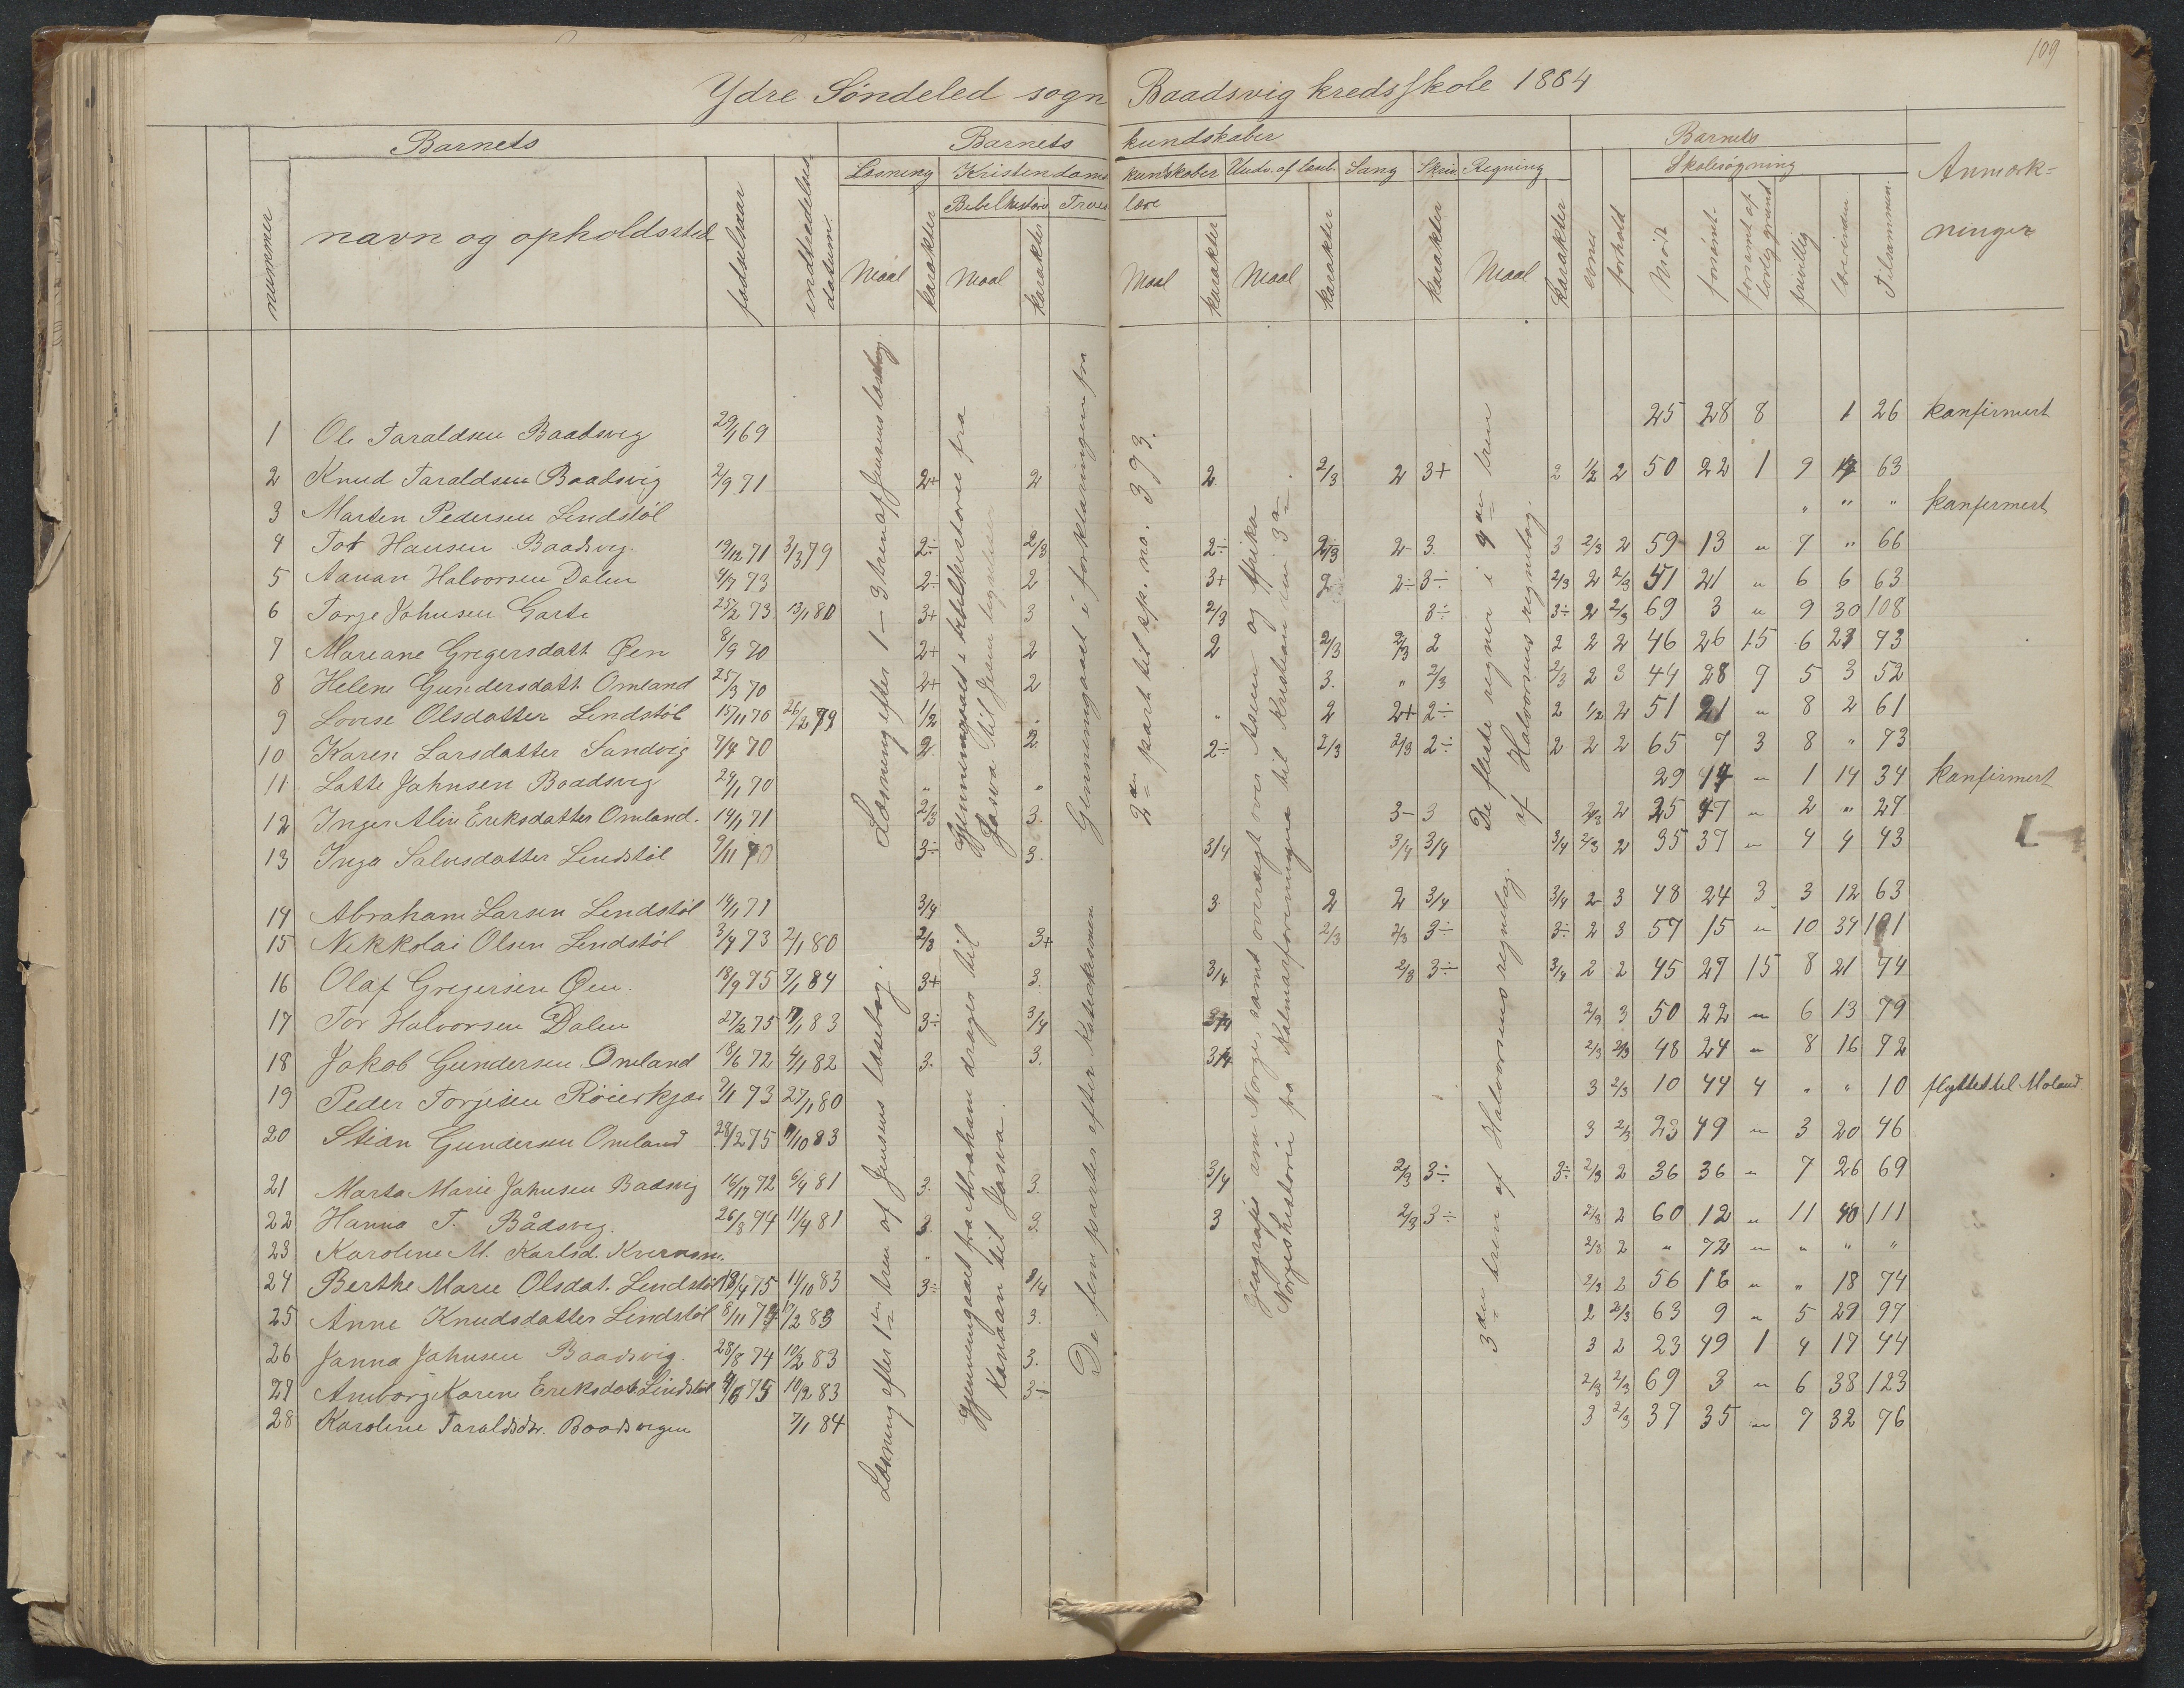 109
Ydre Söndeled sogn Baadsvig kredsskole 1884
Barnets Barnets kundskaber Barnets
Læsning Kristendoms kundskaber Undv. af læseb. Sang Skriv Regning Skolesøgning Anmærk=
Bibelhistorie Troes lære
nummer navn og opholdssted fødselsaar indtrædelses datum Maal karakter Maal karakter Maal karakter Maal karakter karakter Maal karakter evner forhold Mødt forsömt forsömt af lovlig grund frivillig Tilsammen ninger
1 Ole Taraldsen Baadsvig 29/1 69 25 28 8 1 26 konfirmert
2 Knud Taraldsen Baadsvig 2/9 71 2+ 2 2 2/3 2 3+ 2 1/2 2 50 22 1 9 63
3 Marten Pedersen Lindstöl " " " konfirmert
4 Hansen Baadsvig. 19/12 71 3/3 79 2÷ 2/3 2÷ 2/3 2- 3 3 2/3 2 59 13 " 7 " 66
5 Aanan Halvorsen Dalen 4/7 73 2÷ 2 3+ 2 2÷ 3÷ 2/3 2 2/3 51 21 " 6 6 63
6 Torje Johnsen Garte 25/2 73 13/1 80 3+ 3 2/3 3÷ 3÷ 2 2/3 69 3 " 9 30 108
7 Mariane Gregersdatt Øen 8/9 70 2+ 2 2 2/3 2/3 2 2 2 2 46 26 15 6 21 73
8 Helene Gundersdatt Omland 25/3 70 2+ 2 3. " 2/3 2/3 2 3 44 28 9 5 3 52
9 Lovise Olsdatter Lindstöl 15/11 70 26/2 79 1/2 " " 2 2+ 2÷ 2 1/2 2 51 21 " 8 2 61
10 Karen Larsdatter Sandvig 7/4 70 2 2 2÷ 2/3 2/3 2÷ 2 2 2 65 7 3 8 " 73
11 Lotte Johnsen Baadsvig 24/1 70 " " 29 44 " 1 14 34 Konfirmert
12 Inger Aline Eriksdatter Omland. 14/1 71 2/3 3. 3- 3 2/3 2 25 47 " 2 " 27
13 Inga Salvesdatter Lindstöl 9/11 70 3÷ 3. 3/4 3/4 3/4 3/4 2/3 2 35 37 " 4 4 43
14 Abraham Larsen Lindstöl 14/1 71 3/4 3 2 2 3/4 3/4 2 3 48 24 3 3 12 63
15 Nikkolai Olsen Lindstöl 3/4 73 2/1 80 2/3 3+ 2/3 2/3 3÷ 3÷ 2 3 57 15 " 10 34 101
16 Olaf Gregersen Øen. 18/9 75 7/1 84 3+ 3. 3/4 2/3 3÷ 3/4 2 2 45 27 15 8 21 74
17 Tor Halvorsen Dalen 27/2 75 17/1 83 3÷ 3/4 3/4 2/3 3 50 22 " 6 13 79
18 Jakob Gundersen Omland 18/6 72 4/1 82 3. 3. 3/4 2/3 2/3 48 24 " 8 16 72
19 Peder Torjesen Röierkjær 7/1 73 27/1 80 3 2/3 10 44 4 " " 10 flyttet til Moland
20 Stian Gundersen Omland 28/2 75 11/10 83 3 2/3 23 49 " 3 20 46
21 Marta Marie Johnsen Badsvig 72 6/4 81 3. 3. 3/4 2/3 3÷ 3÷ 2/3 2 36 36 " 7 26 69
22 Hanna T. Bådsvig. 26/3 74 11/4 81 3. 3. 3 2/3 3÷ 2/3 2 60 12 " 11 40 111
23 Karoline M. Karlsd. " 2/3 2 " 72 " " " "
24 Berthe Marie Olsdat. Lindstöl 18/4 75 11/10 83 3÷ 3/4 2/3 2 56 16 " " 18 74
25 Anne Knudsdatter Lindstöl 8/11 74 17/2 83 3. 2 2/3 63 9 " 5 29 97
26 Janna Johnsen Baadsvig. 28/8 74 10/2 83 3. 3 2 23 49 1 4 17 44
27 Amborg Karine Eriksdat Lindstöl 75 10/2 83 3÷ 2/3 2/3 69 3 " 6 38 123
28 Karoline Taraldsdtr. Baadsvigen 7/1 84 3 2/3 37 35 " 7 32 76
Læsning efter 1 – 3 trin af Jensens læsebog.
Læsning efter 1ste trin af Jensens læsebog.
Gjennemgaaet i bibelhistorie fra
Josva til Jesu lignelser
Gjennemgaaet fra Abraham drages til
Kanaan til Josva.
Gjennemgaaet i forklaringen fra
De fem parter efter Katekismen
2den part til sp. no. 393.
Geografi om Norge, samt oversigt over Asien og Afrika
Norges historie fra Kalmarforeningen til Kristian den 3die.
De fleste regner i 4de trin
af Halvorsens regnebog.
3die trin af Halvorsens regnebog.